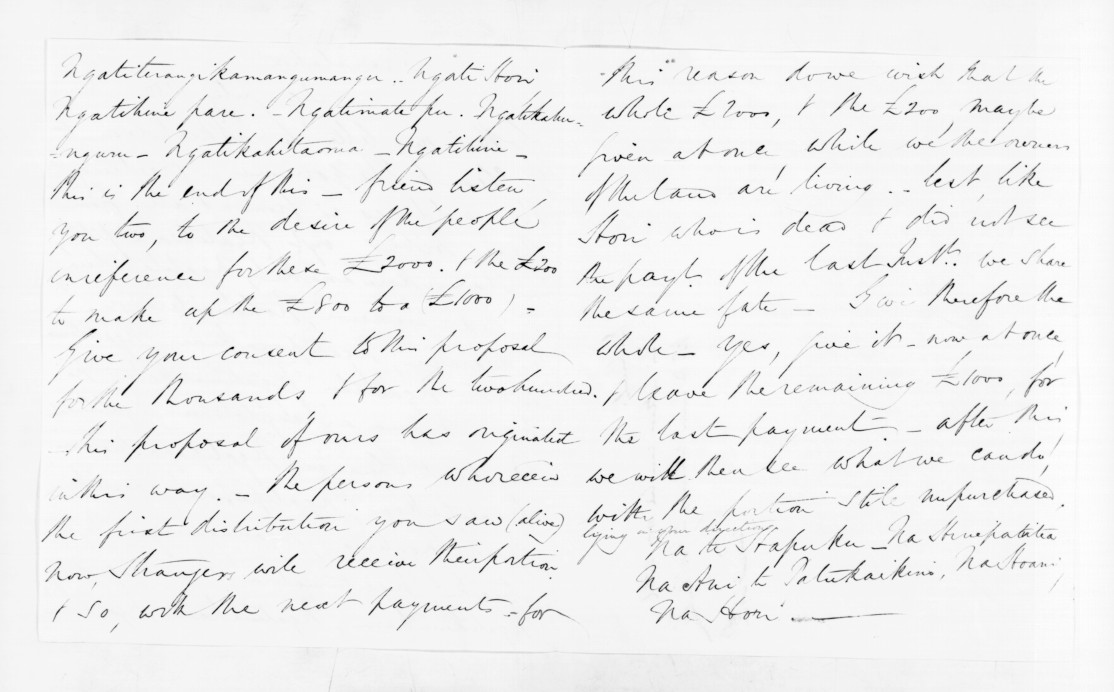 Ngatiterangikamangumangu.. Ngati Hori
Ngatihine pare. - Ngatimate pu. Ngatikahu-
-nguru - Ngatikahitaoma - Ngatihine -
this is the end of this - friend listen
you two, to the desire of the people
in reference for these £2000. & the £200
to make up the £800 to a (£1000) -
Give your consent to this proposal
for the thousands & for the two hundred.
- this proposal of ours has originated
in this way. - the persons who receive
the first distribution you saw (alive)
now, Strangers will receive their portion.
& so, with the next payments - for
this reason do we wish that the
whole £2000, & the £200, maybe
given at once while we the owners
of the land are living. - lest like
Hori who is dead & did not see
the payt. of the last Instt. we share
the same fate - Give therefore the
whole - yes, give it - now at once,
& leave the remaining £1000, for
the last payment - after this
we will then see what we can do,
with the portion still unpurchased.
lying in your direction
Na te Hapuku - Na Hinepatutia
Na Ani te Patukaikino, Na Hoani,
Na Hori -